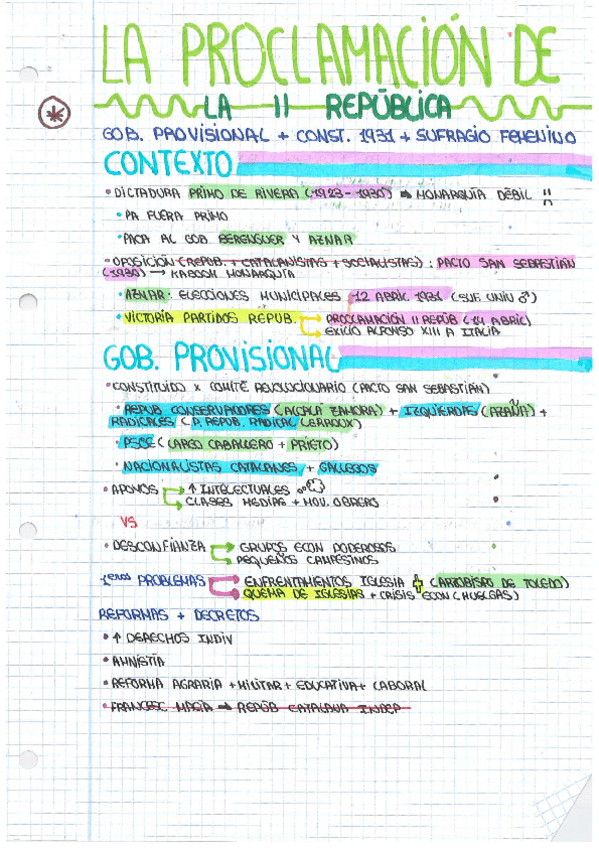 LA PROCLAMACIÓN DE
LA II REPÚBLICA
GOB. PROVISIONAL + CONST. 1931 + SUFRAGIO FEMENINO
CONTEXTO
• DICTADURA PRIMO DE RIVERA (1923-1930) ⇒ MONARQUÍA DÉBIL
• PA FUERA PRIMO
• PACA AL GOB. BERENGUER Y AZNAR
• OPOSICIÓN (REPUB. + CATALANISTAS + SOCIALISTAS): PACTO SAN SEBASTIÁN
(1930) → KABOOM MONARQUÍA
• AZNAR: ELECCIONES MUNICIPALES 12 ABRIL 1931 (SUF. UNIV ♂)
• VICTORIA PARTIDOS REPUB. → PROCLAMACIÓN II REPÚB (14 ABRIL)
→ EXILIO ALFONSO XIII A ITALIA
GOB. PROVISIONAL
• CONSTITUIDO X COMITÉ REVOLUCIONARIO (PACTO SAN SEBASTIÁN)
• REPUB CONSERVADORES (ALCALÁ ZAMORA) + IZQUIERDAS (AZAÑA) +
RADICALES (P. REPUB. RADICAL LERROUX)
• PSOE (LARGO CABALLERO + PRIETO)
• NACIONALISTAS CATALANES + GALLEGOS
• APOYOS → ↑ INTELECTUALES
→ CLASES MEDIAS + MOV. OBRERO
VS
• DESCONFIANZA → GRUPOS ECON PODEROSOS
→ PEQUEÑOS CAMPESINOS
1eros PROBLEMAS → ENFRENTAMIENTOS IGLESIA (ARZOBISPO DE TOLEDO)
→ QUEMA DE IGLESIAS + CRISIS ECON (HUELGAS)
REFORMAS + DECRETOS
• ↑ DERECHOS INDIV
• AMNISTÍA
• REFORMA AGRARIA + MILITAR + EDUCATIVA + LABORAL
• FRANCESC MACIÀ ⇒ REPÚB CATALANA INDEP